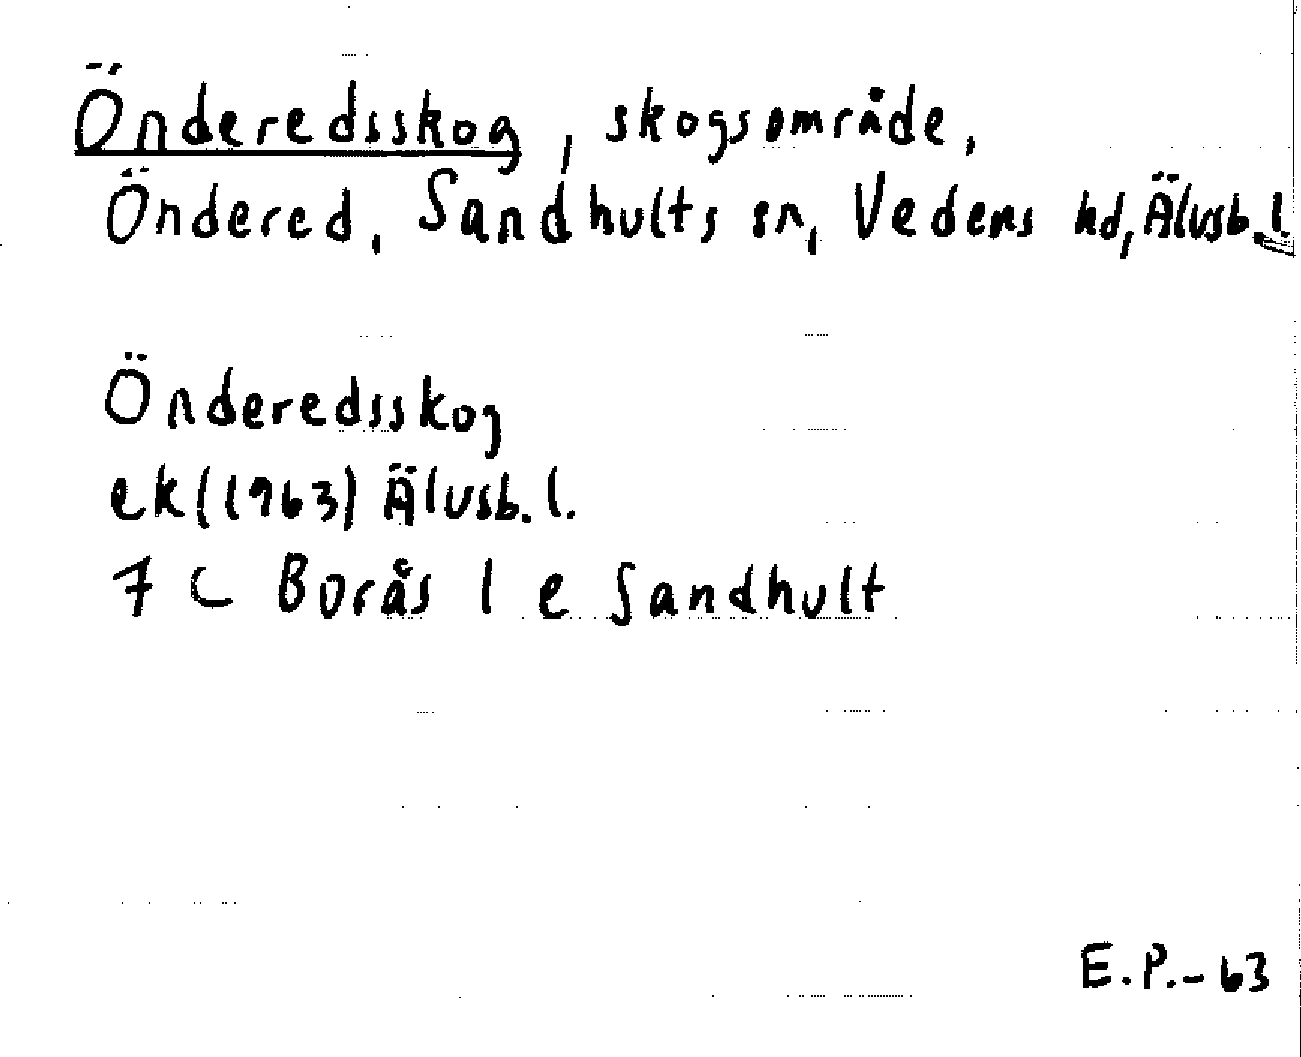 Önderedsskog, skogsområde,
Öndered, Sandhults sn, Vedens hd, Älvsb. l.
Önderedsskog
ek (1963) Älvsb. l.
7 C Borås l e Sandhult
E.P.-63